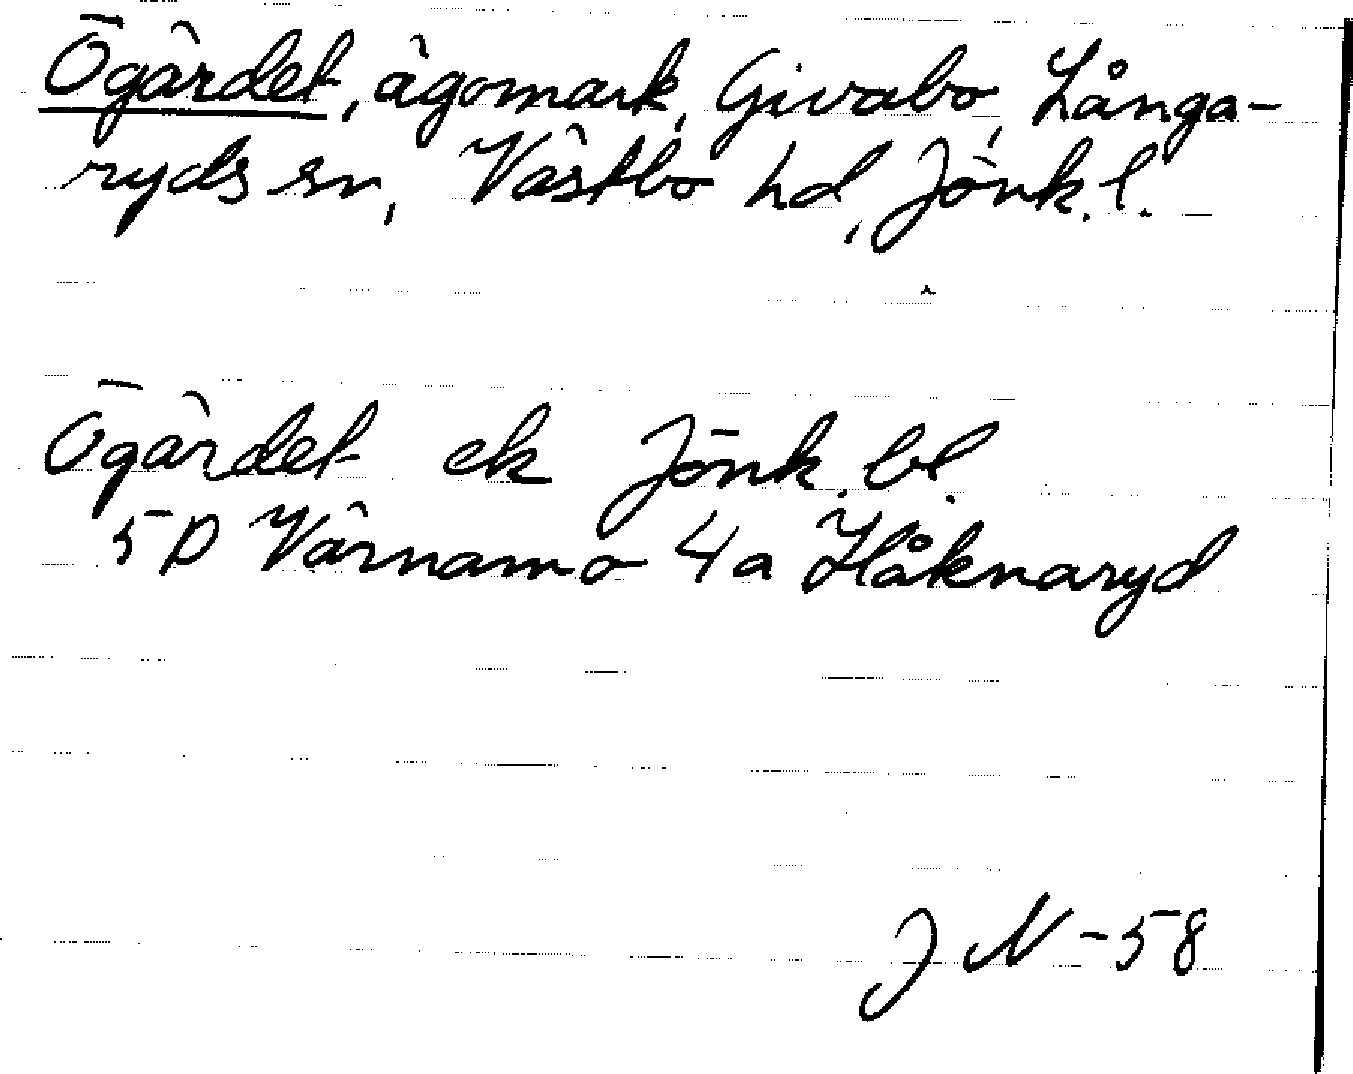 Ögärdet, ägomark, Givabo, Långa-
ryds sn, Västbo hd, Jönk.l.
Ögärdet ek Jönk. bl.
5D Värnamo 4a Håknaryd
JN -58